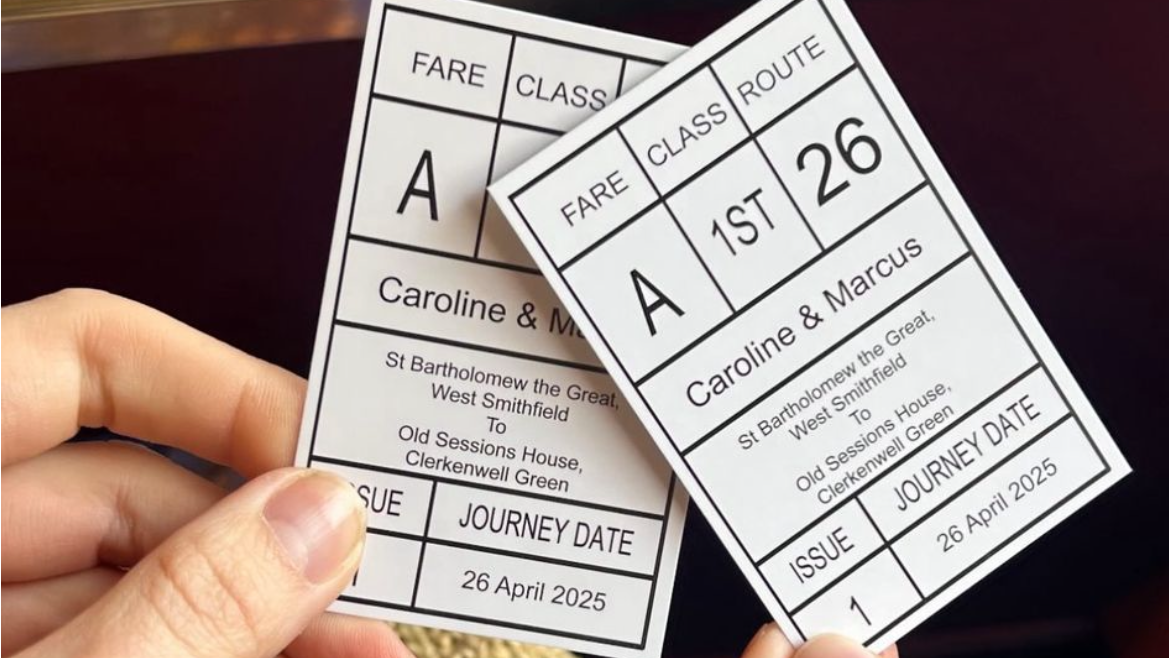 FARE CLASS
A
Caroline &
St Bartholomew the Great,
West Smithfield
To
Old Sessions House,
Clerkenwell Green
JOURNEY DATE
26 April 2025
FARE CLASS ROUTE
A 1ST 26
Caroline & Marcus
St Bartholomew the Great,
West Smithfield
To
Old Sessions House,
Clerkenwell Green
ISSUE JOURNEY DATE
1 26 April 2025